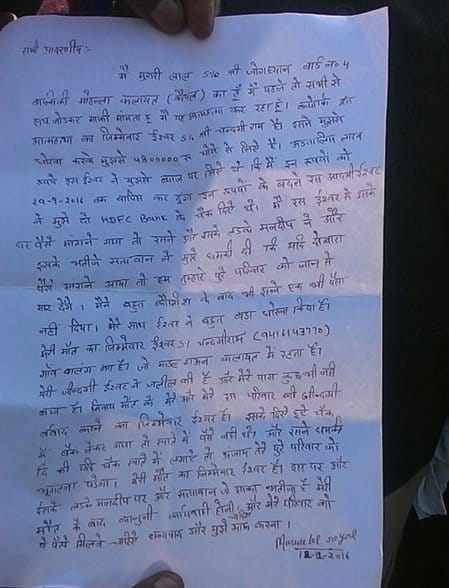 सभी आदरणीय :-
मैं मुन्शी लाल S/o श्री जोगध्यान वार्ड न० 4
बाल्मिकी मोहल्ला कलायत (कैथल) का हूँ मैं पहले तो सभी से
हाथ जोडकर माफी मांगता हूँ मैं यह आत्महत्या कर रहा हूँ। क्योंकि इस
आत्महत्या का जिम्मेवार ईश्वर S/o श्री चन्दगी राम है। इसने मुझसे
धोखा करके मुझसे 4800000 रु धोखे से लिये है। अडतालिस लाख
रूपये इस ईश्वर ने मुझसे ब्याज पर लिये थे कि मैं इन रूपयों को
29-9-2016 तक वापिस कर दूंगा इन रूपयों के बदले इस आदमी ईश्वर
ने मुझे दो HDFC Bank के चैक दिये थे। मैं इस ईश्वर से उसके
घर पैसे मांगने गया तो इसने और इसके लडके मनदीप ने और
इसके भतीजे सत्यवान ने मुझे धमकी दी कि यदि दोबारा
पैसे मांगने आया तो हम तुम्हारे पुरे परिवार को जान से
मार देंगे। मैंने बहुत कोशिश के बाद भी इसने एक भी पैसा
नहीं दिया। मेरे साथ ईश्वर ने बहुत बडा धोखा किया है।
मेरी मौत का जिम्मेवार ईश्वर S/o चन्दगीराम (9416143770)
गाँव बालू का है। जो माडल टाऊन कलायत में रहता है।
मेरी जीन्दगी ईश्वर ने जलील की है और मेरे पास कुछ भी नहीं
बचा है। सिवाय मौत के मेरे और मेरे परिवार की जीन्दगी
बर्बाद करने का जिम्मेवार ईश्वर है। इसके दिये हुऐ चैक
मैं बैंक लेकर गया तो खाते में पैसे नहीं थे। और इसने धमकी
दि की यदि चैक खाते में लगाऐ तो अंजाम तेरे पुरे परिवार को
भुगतना पडेगा। मेरी मौत का जिम्मेवार ईश्वर है। इस पर और
इसके लडके मनदीप पर और सत्यवान जो इसका भतीजा है मेरी
मौत के बाद कानुनी कार्यवाही होनी चाहिये और मेरे परिवार को
ये पैसे मिलने चाहिये धन्यवाद और मुझे माफ करना।
12-11-2016